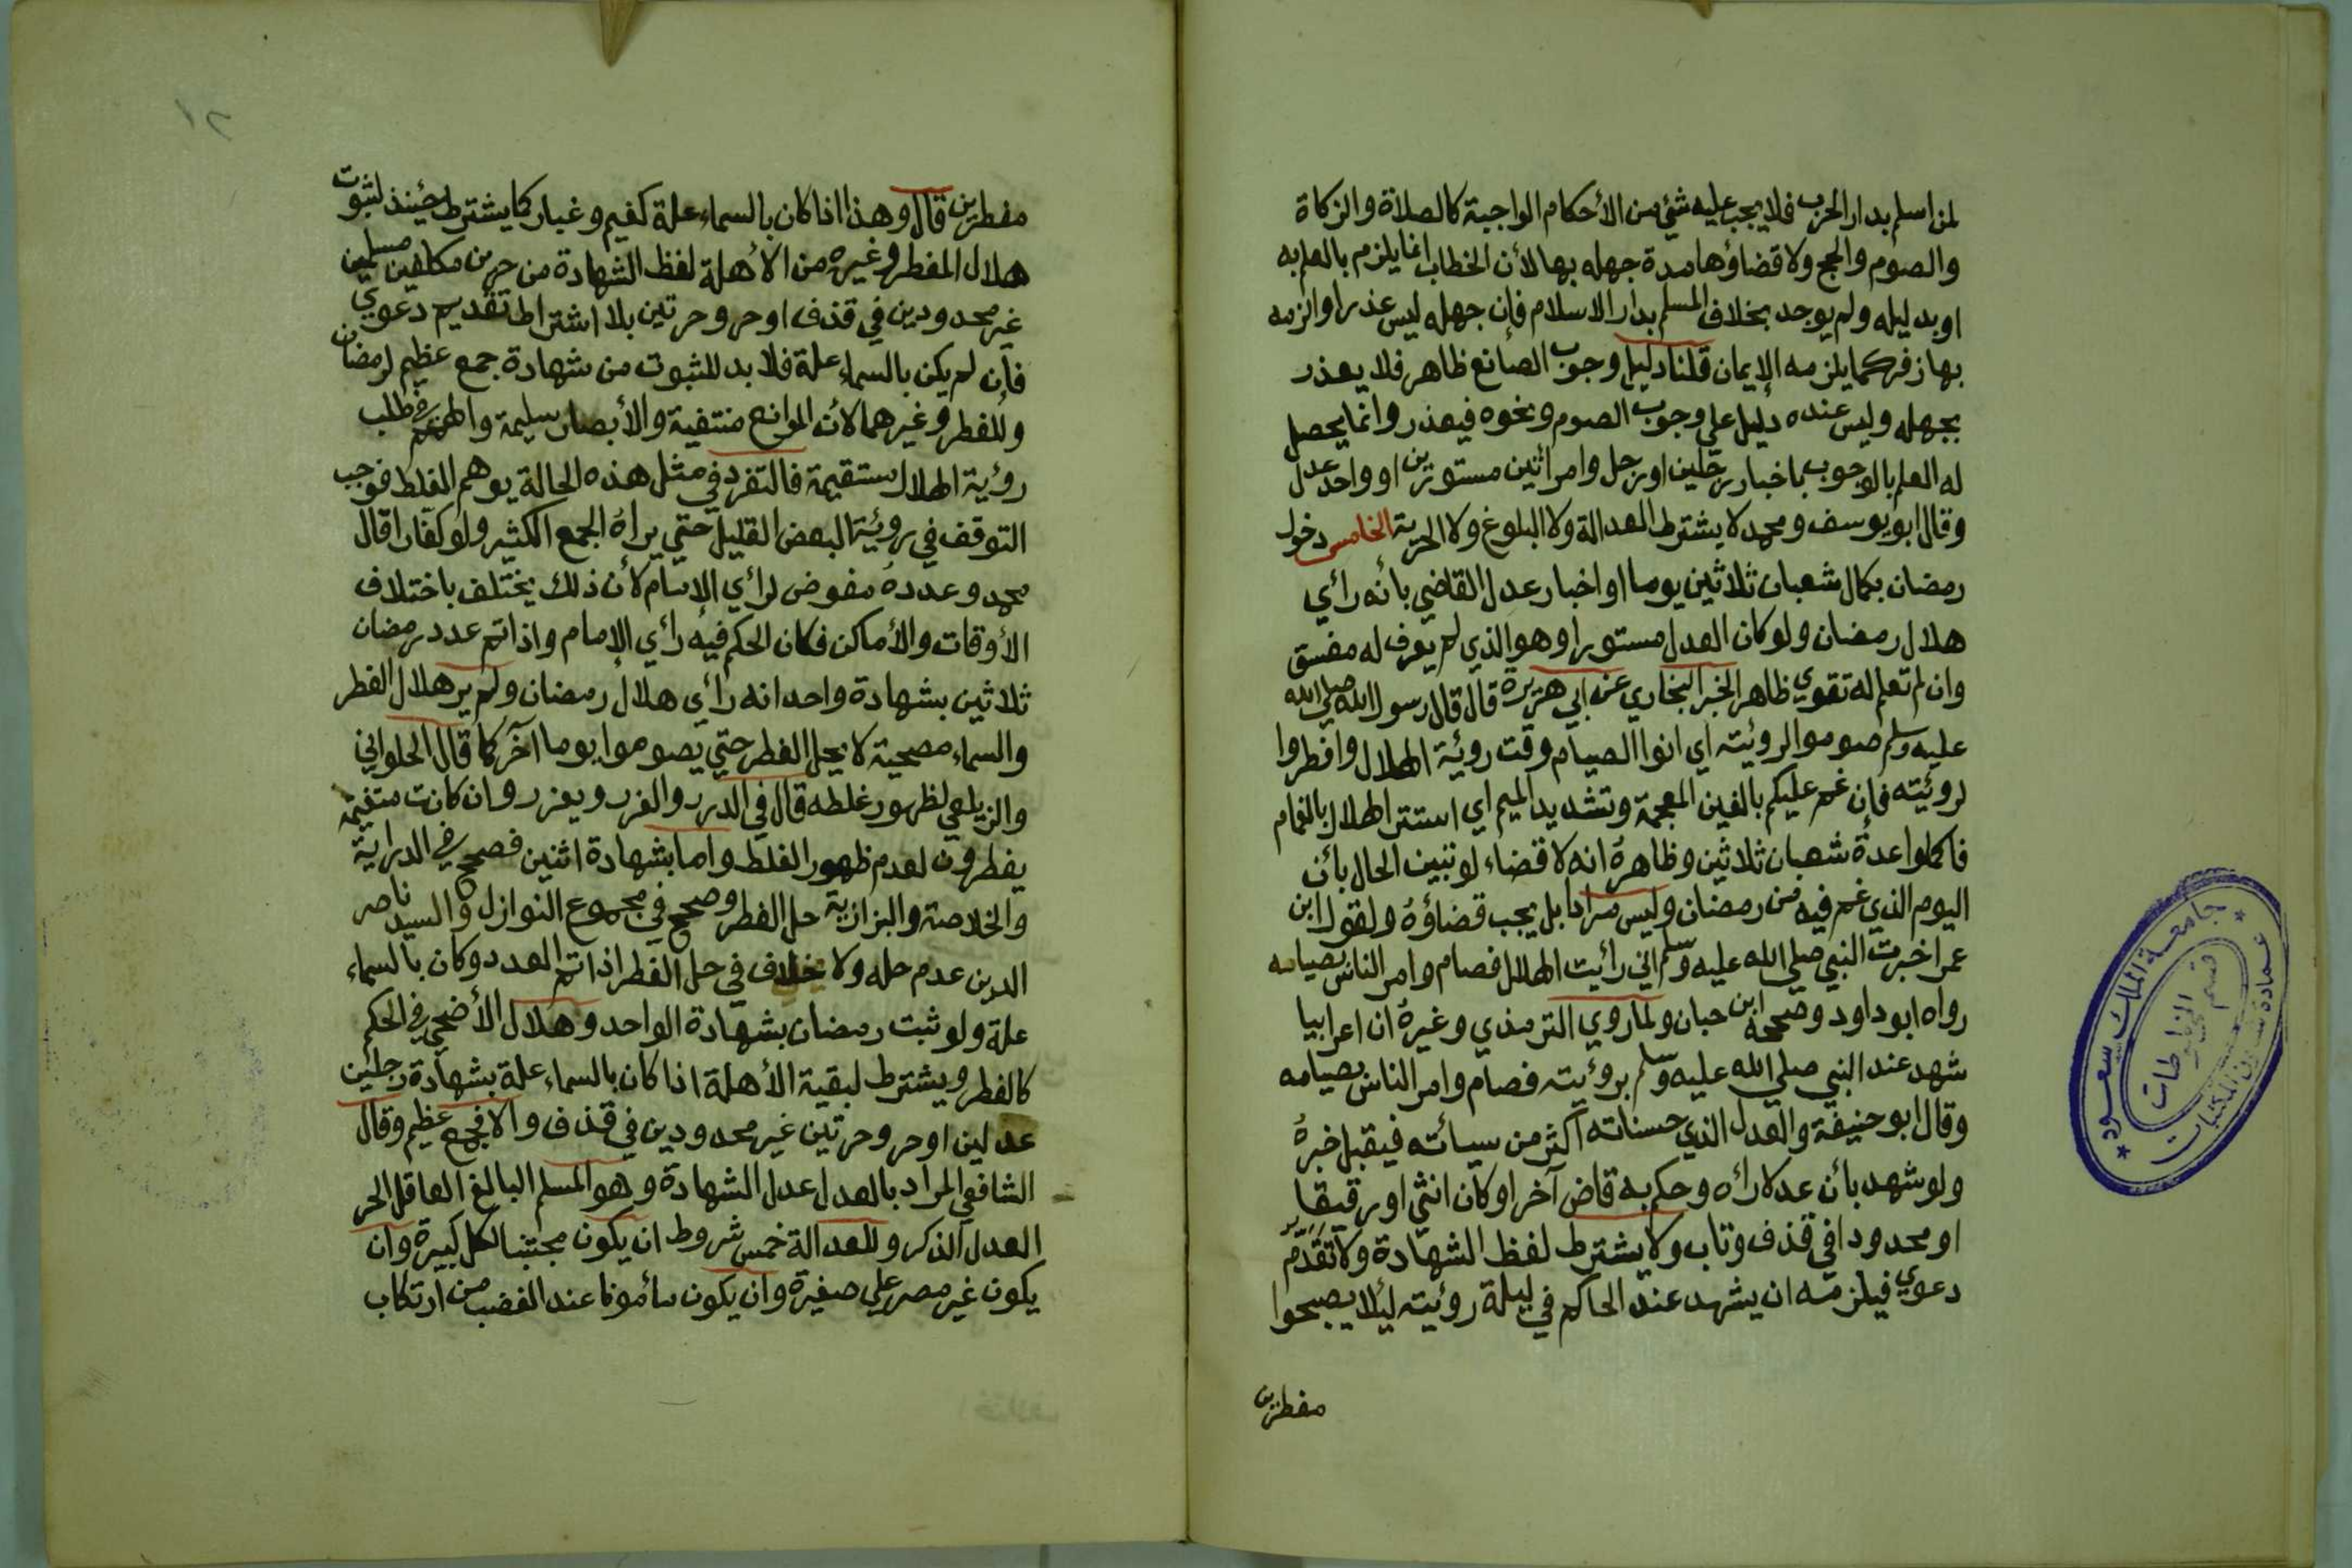 لمن اسلم بدار الحرب فلا يجب عليه شئ من الأحكام الواجبة كالصلاة والزكاة
والصوم والحج ولا قضاؤها مدة جهله بها لأن الخطاب انما يلزم بالعلم به
او بدليله ولم يوجد بخلاف المسلم بدار الاسلام فإن جهله ليس عذرا والزمه
بها زفر كما يلزمه الإيمان قلنا دليل وجوب الصانع ظاهر فلا يعذر
بجهله وليس عنده دليل علي وجوب الصوم ونحوه فيعذر وانما يحصل
له العلم بالوجوب باخبار رجلين او رجل وامرأتين مستورين او واحد عدل
وقال ابو يوسف ومحمد لا يشترط العدالة ولا البلوغ ولا الحرية الخامس دخول
رمضان بكمال شعبان ثلاثين يوما او اخبار عدل القاضي بأنه رأي
هلال رمضان ولو كان العدل مستورا وهو الذي لم يعرف له مفسق
وان لم تعلم له تقوي ظاهر الخبر البخاري عن ابي هريرة قال قال رسول الله صلي الله
عليه وسلم صوموا لرؤيته اي انووا الصيام وقت روئية الهلال وافطروا
لروئيته فإن غم عليكم بالغين المعجمة وتشديد الميم اي استتر الهلال بالغمام
فاكملوا عدة شعبان ثلاثين وظاهره انه لا قضاء لو تبين الحال بأن
اليوم الذي غم فيه من رمضان وليس مرادا بل يجب قضاؤه ولقول ابن
عمر اخبرت النبي صلي الله عليه وسلم اني رأيت الهلال فصام وامر الناس بصيامه
رواه ابو داود وصححه ابن حبان ولما روي الترمذي وغيره ان اعرابيا
شهد عند النبي صلي الله عليه وسلم بروئيته فصام وامر الناس بصيامه
وقال ابو حنيفة والعدل الذي حسناته اكثر من سيأته فيقبل خبره
ولو شهد بأن عدلا رأه وحكم به قاض آخر او كان انثي او رقيقا
او محدودا في قذف وتاب ولا يشترط لفظ الشهادة ولا تقدم
دعوي فيلزمه ان يشهد عند الحاكم في ليلة روئيته لئلا يصبحوا
مفطرين
مفطرين قال وهذا اذا كان بالسماء علة كغيم وغبار كما يشترط حينئذ لثبوت
هلال الفطر وغيره من الأهلة لفظ الشهادة من حرين مكلفين مسلمين
غير محدودين في قذف او حر وحرتين بلا اشتراط تقديم دعوي
فإن لم يكن بالسماء علة فلا بد للثبوت من شهادة جمع عظيم لرمضان
وللفطر وغيرهما لأن الموانع منتفية والأبصار سليمة والهمم في طلب
رؤية الهلال مستقيمة فالتفرد في مثل هذه الحالة يوهم الغلط فوجب
التوقف في روئية البعض القليل حتي يراه الجمع الكثير ولو كفارا قال
محمد وعدده مفوض لرأي الإمام لأن ذلك يختلف باختلاف
الأوقات والأماكن فكان الحكم فيه رأي الإمام واذا تم عدد رمضان
ثلاثين بشهادة واحد انه رأي هلال رمضان ولم ير هلال الفطر
والسماء مصحية لا يحل الفطر حتي يصوموا يوما آخر كما قال الحلواني
والزيلعي لظهور غلطه قال في الدرر والغرر ويعزر وان كانت متغيمة
يفطرون لعدم ظهور الغلط واما بشهادة اثنين فصحح في الدراية
والخلاصة والبزازية حل الفطر وصحح في مجموع النوازل والسيد ناصر
الدين عدم حله ولا خلاف في حل الفطر اذا تم العدد وكان بالسماء
علة ولو ثبت رمضان بشهادة الواحد وهلال الأضحي في الحكم
كالفطر ويشترط لبقية الأهلة اذا كان بالسماء علة بشهادة رجلين
عدلين او حر وحرتين غير محدودين في قذف والا فجمع عظيم وقال
الشافعي المراد بالعدل عدل الشهادة وهو المسلم البالغ العاقل الحر
العدل الذكر وللعدالة خمس شروط ان يكون مجتنبا لكل كبيرة وان
يكون غير مصر علي صغيرة وان يكون مأمونا عند الغضب من ارتكاب
جامعة الملك سعود
عمادة شؤون المكتبات
قسم المخطوطات